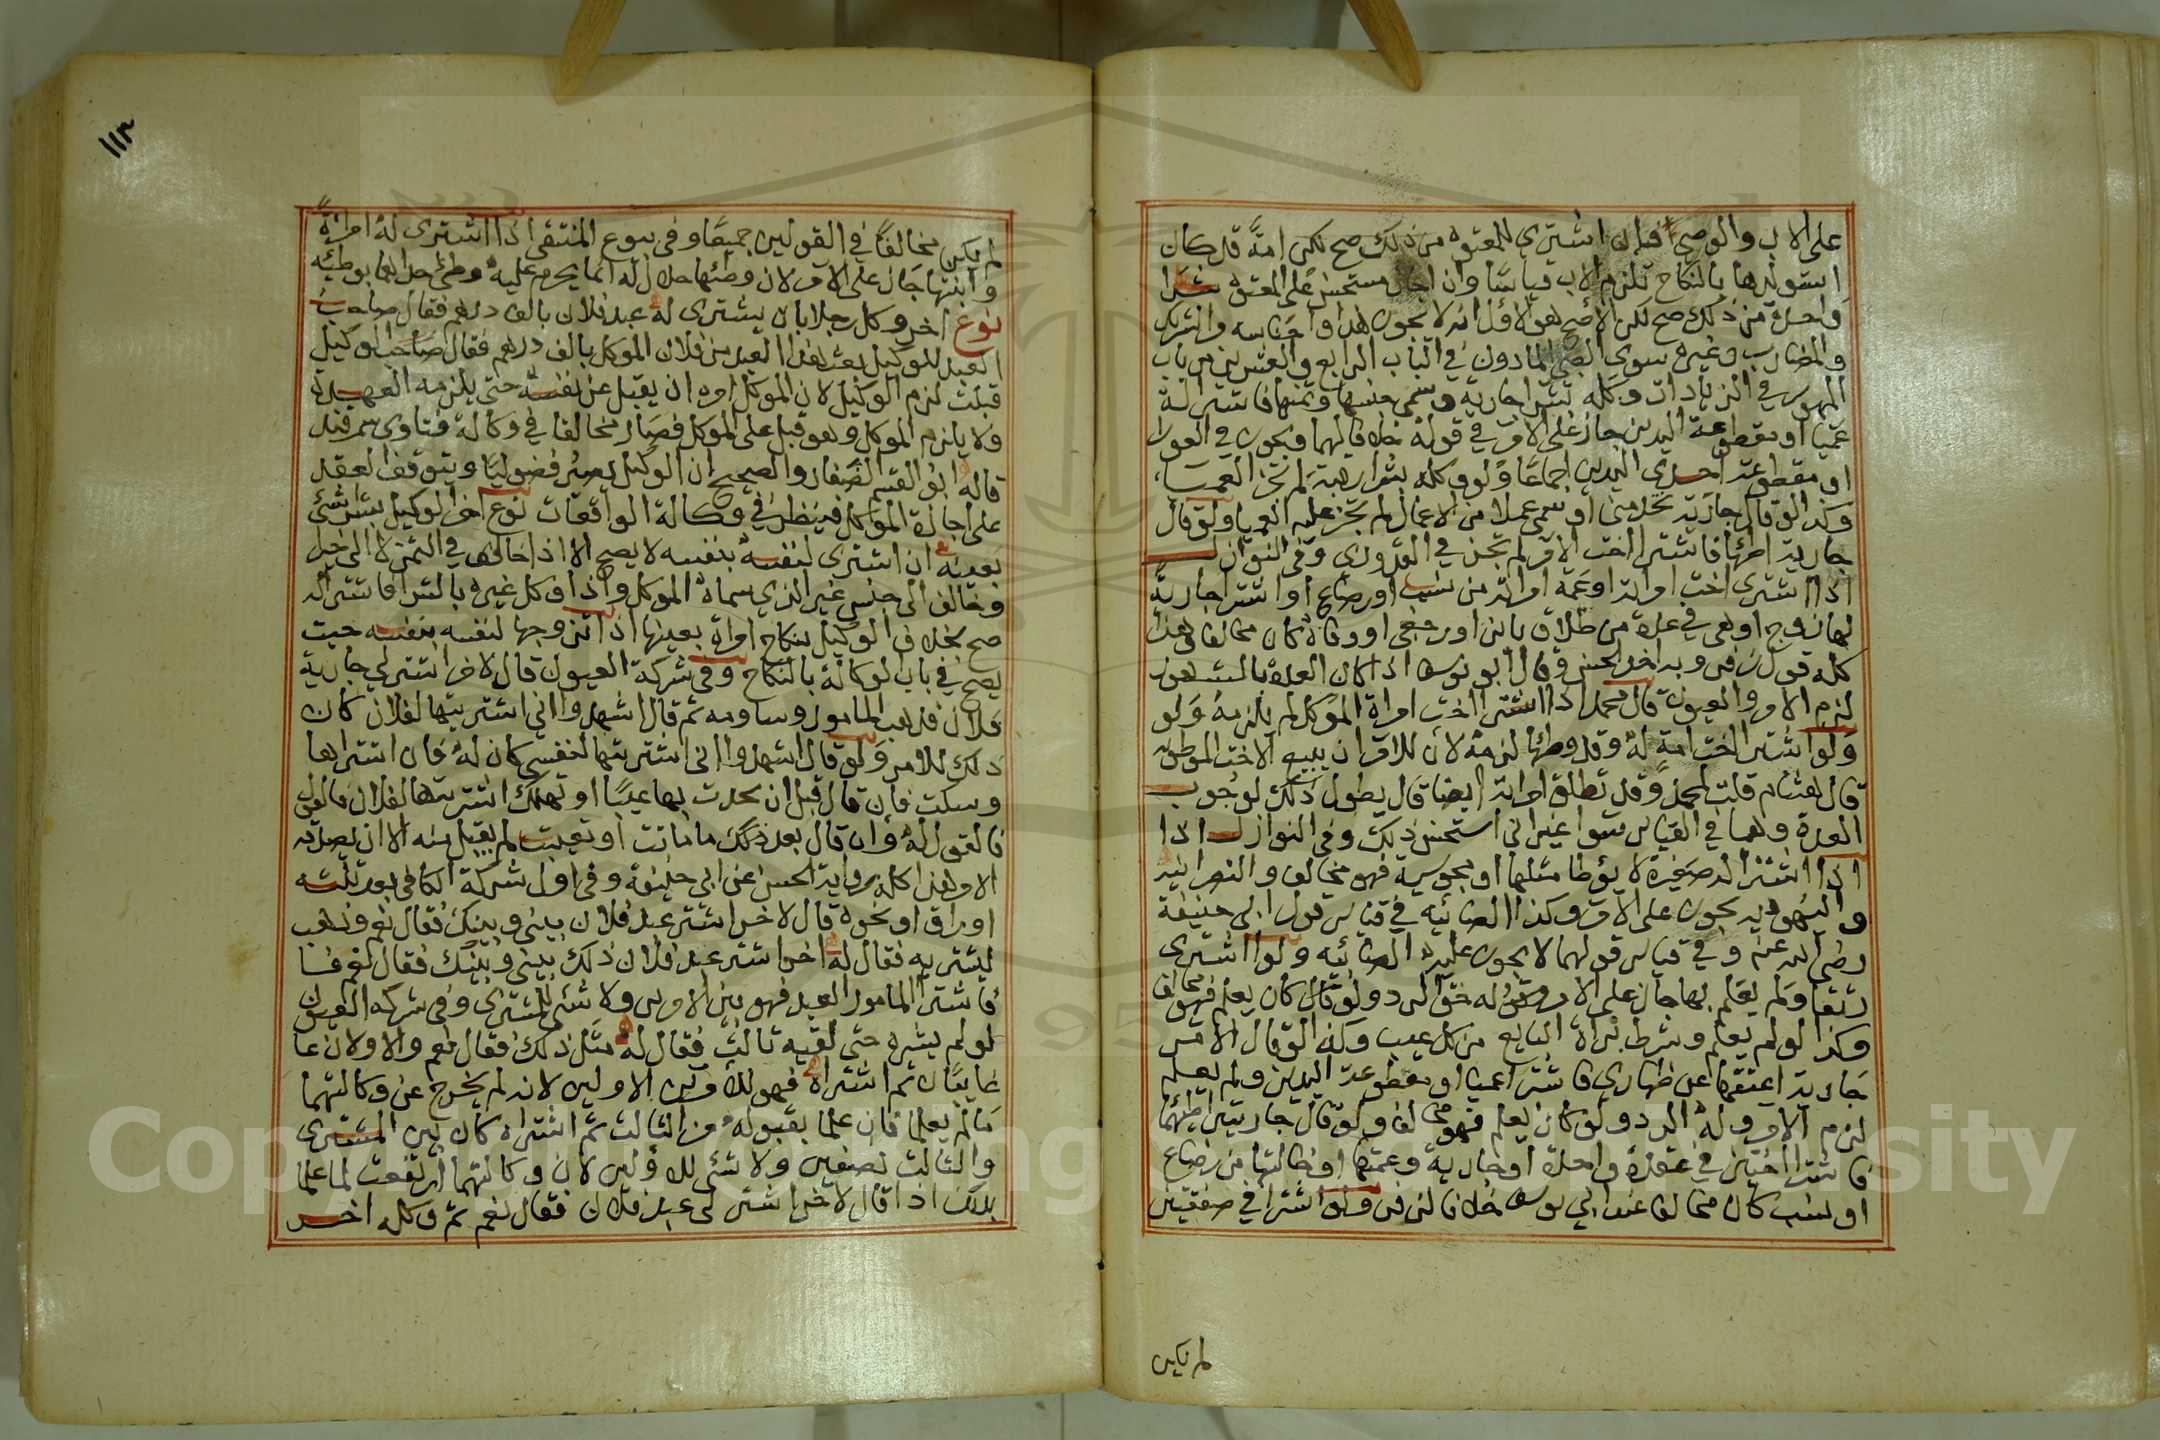 على الاب والوصي فان اشترى للمعتوه من ذلك صح لكن امة قد كان
استولدها بالنكاح تلزم الاب قياسا وان اجاز مستحسن على المعتوه شرا
واحدة من ذلك صح لكن الأصح هو الاول انه لا يجوز هذا واجناسه والشريك
والمضارب وغيره سوى الصبي المادون في الباب الرابع والعشرين من باب
المهور في الزيادات وكله بشرا جارية وسمى جنسها وثمنها فاشترا له
عميا او مقطوعة اليدين جاز على الامر في قوله خلافا لهما ويجوز في العورا
او مقطوعة احدى اليدين اجماعا ولو وكله بشرا رقبة لم تجز العميا
وكذا لو قال جارية تخدمني او سمى عملا من الاعمال لم تجز عليه العميا ولو قال
جارية اطئها فاشترا اخت الامر لم تجز في القدوري وفي النوازل
اذا اشترى اخت امراته او عمة امراته من نسب او رضاع او اشترا جارية
لها زوج او هي في عدة من طلاق باين او رجعي او وفاة كان مخالفا هذا
كله قول زفر وبه اخذ الحسن وقال ابو يوسف اذا كان العدة بالشهور
لزم الامر والعيون قال محمد اذا اشترا اخت امراة الموكل لم يلزمه ولو
ولو اشترا اخت امة له وقد وطئها لزمه لان للامر ان يبيع الاخت الموطوه
قال هشام قلت لمحمد وقد تطلق امراته ايضا قال يطول ذلك لوجوب
العدة وهما في القياس سوا غير اني استحسن ذلك وفي النوازل اذا
اذا اشترا له صغيرة لا يوطا مثلها او مجوسية فهو مخالف والنصرانية
واليهودية يجوز على الامر وكذا الصائبة في قياس قول ابي حنيفة
رضي الله عنه وفي قياس قولهما لا يجوز عليه الصائبة ولو اشترى
رتقا ولم يعلم بها جاز على الامر وله حق الرد ولو كان يعلم فهو مخالف
وكذا لو لم يعلم وشرط براة البايع من كل عيب وكذا لو قال الامر
جارية اعتقها عن ظهاري فاشترا عميا او مقطوعة اليدين ولم يعلم
لزم الامر وله الرد ولو كان يعلم فهو مخالف ولو قال جاريتين اطئهما
فاشترا اختين في عقدة واحدة او جارية وعمتها او خالتها من رضاع
او نسب كان مخالفا عند ابي يوسف خلافا لزفر ولو اشترا في صفقتين
لم يكن
١١٣
لم يكن مخالفا في القولين جميعا وفي بيوع المنتقى اذا اشترى له امراة
وابنتها جاز على الامر لان وطئها حلال له انما يحرم عليه وطئ احداهما بوطئه
نوع اخر وكل رجلا بان يشترى له عبد فلان بالف درهم فقال صاحب
العبد للوكيل بعت هذا العبد من فلان الموكل بالف درهم فقال صاحب الوكيل
قبلت لزم الوكيل لان الموكل امره ان يقبل عن نفسه حتى يلزمه العهدة
ولا يلزم الموكل وهو قبل على الموكل فصار مخالفا في وكالة فتاوى سمرقند
قاله ابو القسم الصفار والصحيح ان الوكيل يصير فضوليا ويتوقف العقد
على اجازة الموكل فينظر في وكالة الواقعات نوع اخر الوكيل بشرا شئ
بعينه ان اشترى لنفسه بنفسه لا يصح الا اذا خالف في الثمن لا الى خير
وخالف الى جنس غير الذي سماه الموكل واذا وكل غيره بالشرا فاشترا له
صح بخلاف الوكيل بنكاح امراة بعينها اذا تزوجها لنفسه بنفسه حيث
يصح في باب الوكالة بالنكاح وفي شركة العيون قال لاخر اشتر لي جارية
فلان فذهب المامور وساومه ثم قال اشهدوا اني اشتريتها لفلان كان
ذلك للامر ولو قال اشهدوا اني اشتريتها لنفسي كان له فان اشتراها
وسكت فان قال قبل ان يحدث بها عيبا او تهلك اشتريتها لفلان فالقول
فالقول له وان قال بعد ذلك ما ماتت او تعيبت لم يقبل منه الا ان يصدقه
الامر هذا كله رواية الحسن عن ابي حنيفة وفي اول شركة الكافي بعد ثلثه
اوراق او نحوه قال لاخر اشتر عبد فلان بيني وبينك فقال نعم وذهب
ليشتريه فقال له اخر اشتر عبد فلان ذلك بيني وبينك فقال نعم
فاشترا المامور العبد فهو بين الامرين ولا شئ للمشترى وفي شركة العيون
لو لم يشره حتى لقيه ثالث فقال له مثل ذلك فقال نعم والاولان غا
غايبان ثم اشتراه فهو للاولين لانه لم يخرج عن وكالتهما
مالم يعلما فان علما بقبوله من الثالث ثم اشتراه كان بين المشترى
والثالث نصفين ولا شئ للاولين لان وكالتهما ارتفعت لما علما
بذلك اذا قال لاخر اشتر لى عبد فلان فقال نعم ثم وكله اخر